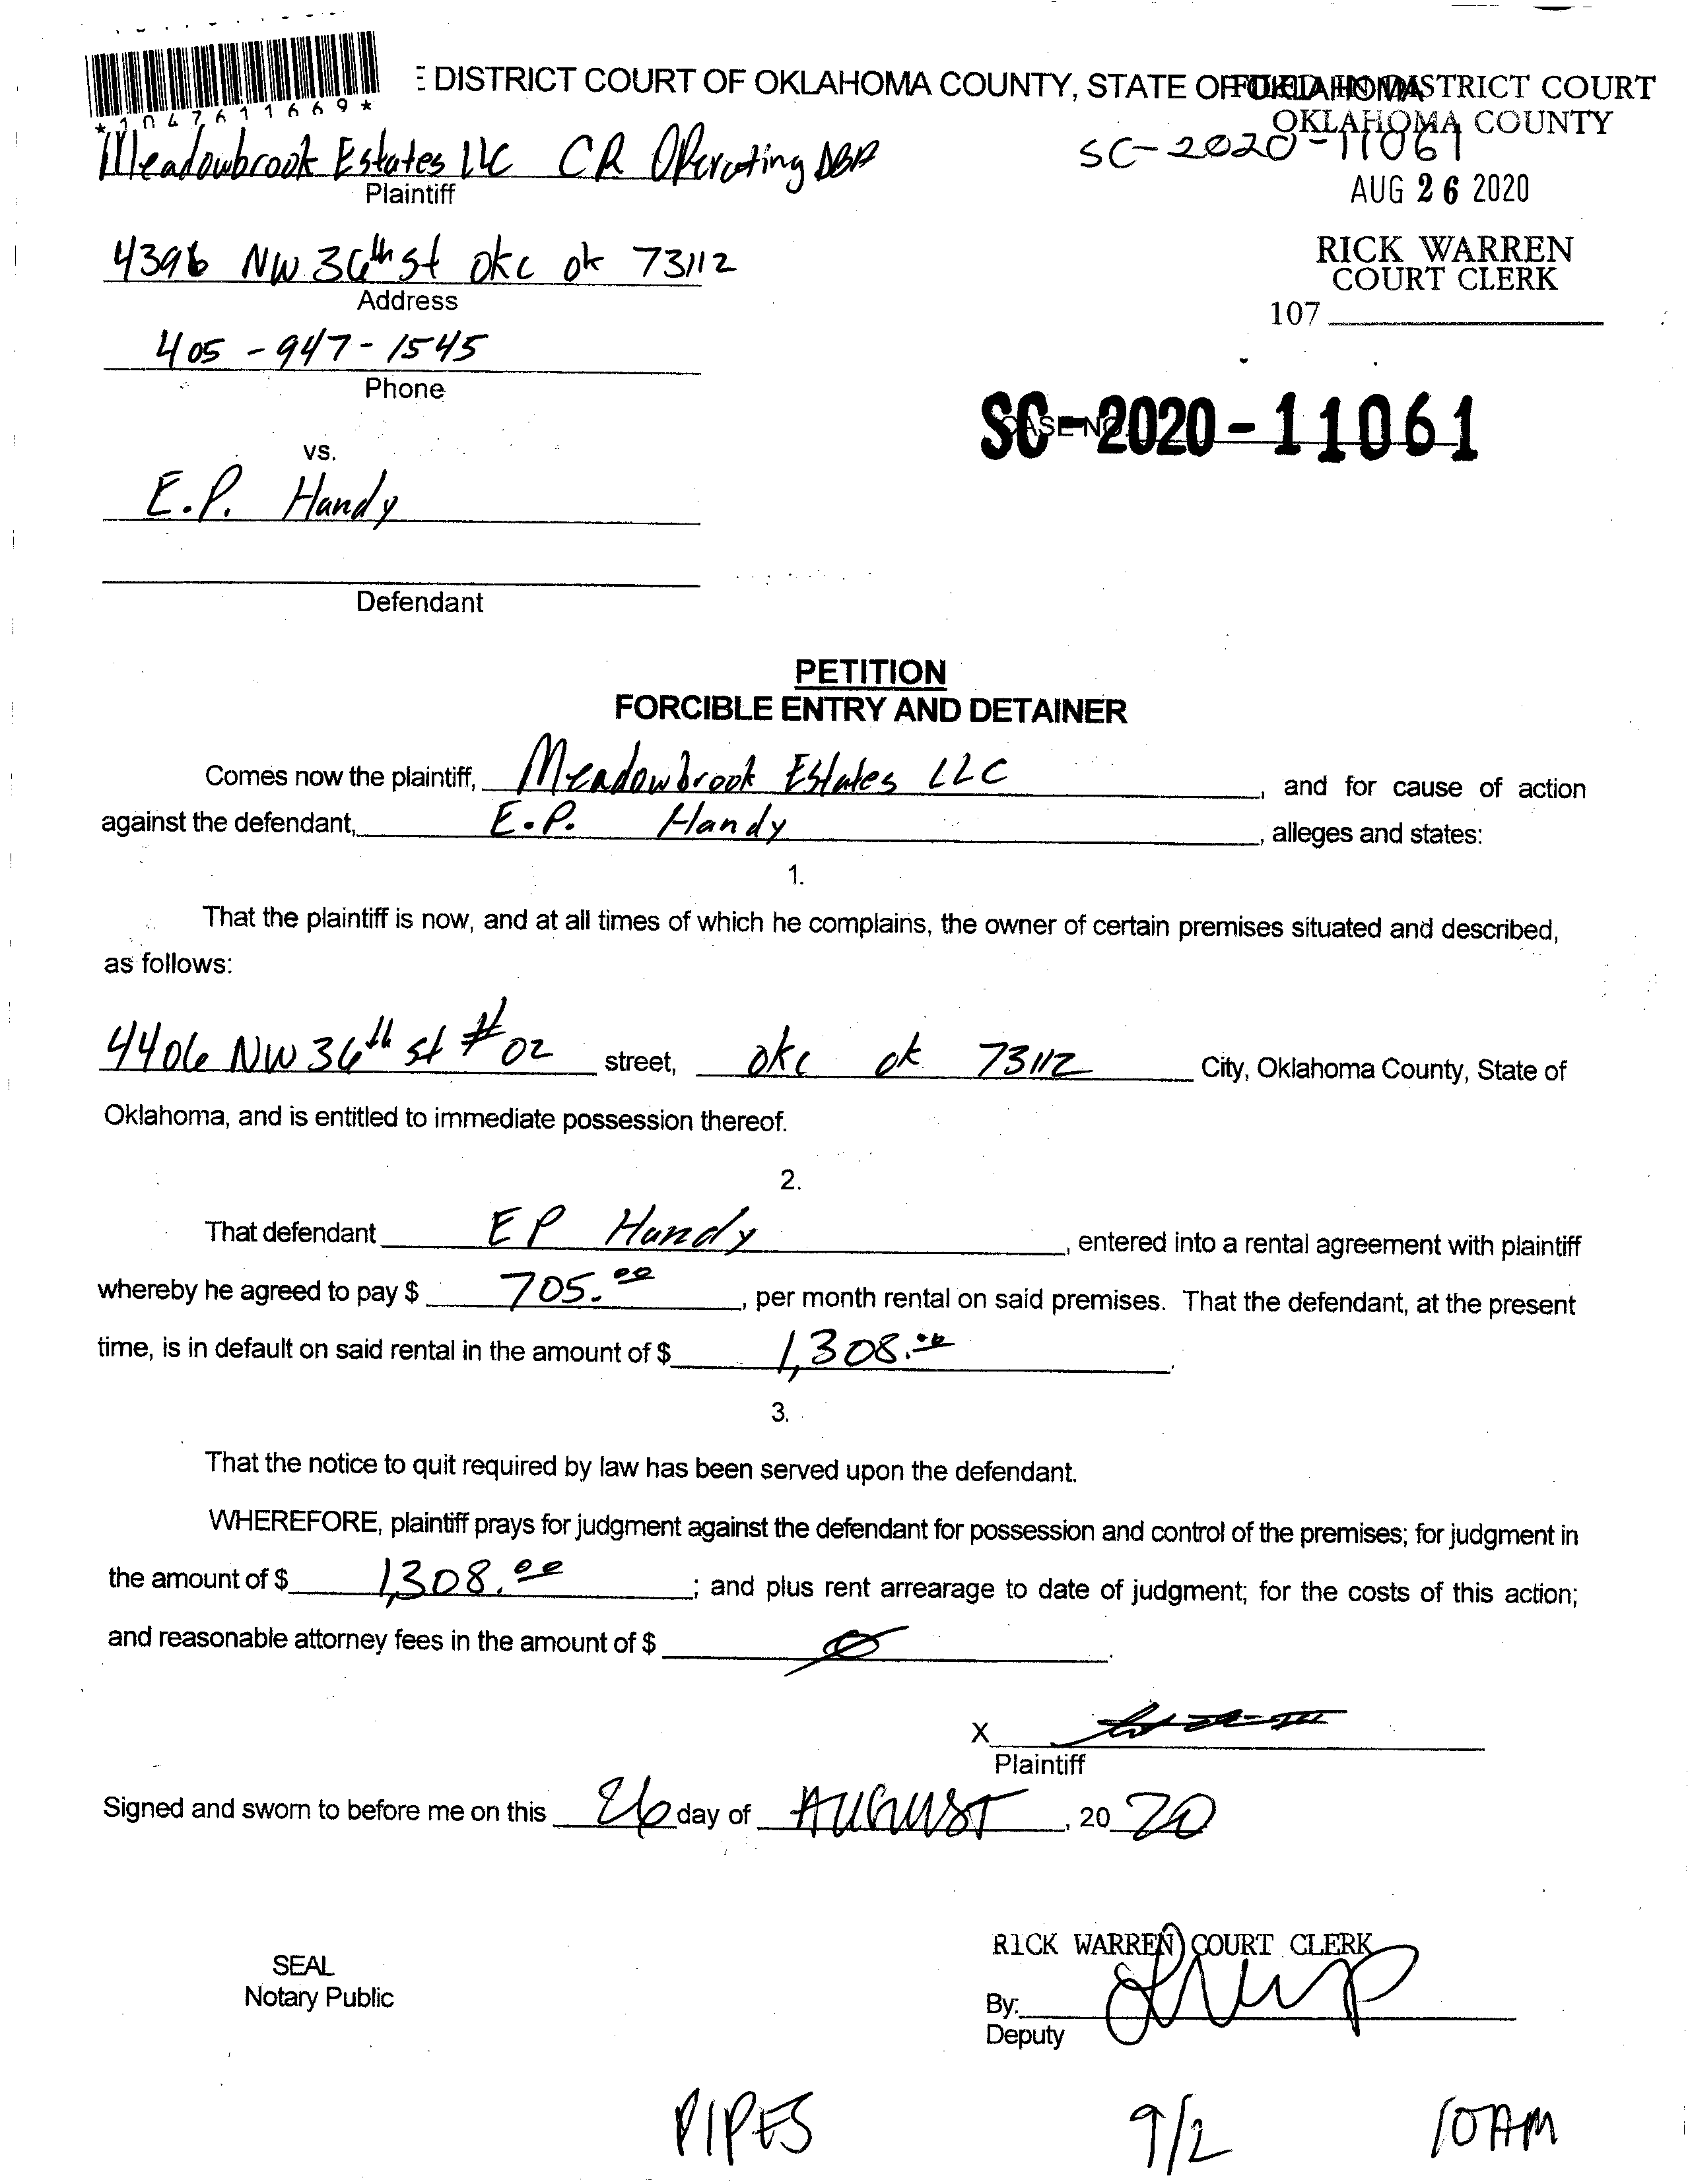 E DISTRICT COURT OF OKLAHOMA COUNTY, STATE OF OKLAHOMA
FILED IN DISTRICT COURT
OKLAHOMA COUNTY
*1047611669*
Meadowbrook Estates LLC CR Operating DBA
SC-2020-11061
Plaintiff
AUG 26 2020
4396 NW 36th st okc ok 73112
RICK WARREN
COURT CLERK
Address
107
405-947-1545
Phone
SC-2020-11061
CASE NO.
vs.
E.P. Handy
Defendant
PETITION
FORCIBLE ENTRY AND DETAINER
Comes now the plaintiff, Meadowbrook Estates LLC, and for cause of action
against the defendant, E.P. Handy, alleges and states:
1.
That the plaintiff is now, and at all times of which he complains, the owner of certain premises situated and described,
as follows:
4406 NW 36th st #02 street, okc ok 73112 City, Oklahoma County, State of
Oklahoma, and is entitled to immediate possession thereof.
2.
That defendant EP Handy, entered into a rental agreement with plaintiff
whereby he agreed to pay $ 705.00, per month rental on said premises. That the defendant, at the present
time, is in default on said rental in the amount of $ 1,308.00.
3.
That the notice to quit required by law has been served upon the defendant.
WHEREFORE, plaintiff prays for judgment against the defendant for possession and control of the premises; for judgment in
the amount of $ 1,308.00; and plus rent arrearage to date of judgment; for the costs of this action;
and reasonable attorney fees in the amount of $ Ø.
X
Plaintiff
Signed and sworn to before me on this 26 day of AUGUST, 20 20
RICK WARREN COURT CLERK
SEAL
Notary Public
By:
Deputy
PIPES 9/2 10AM